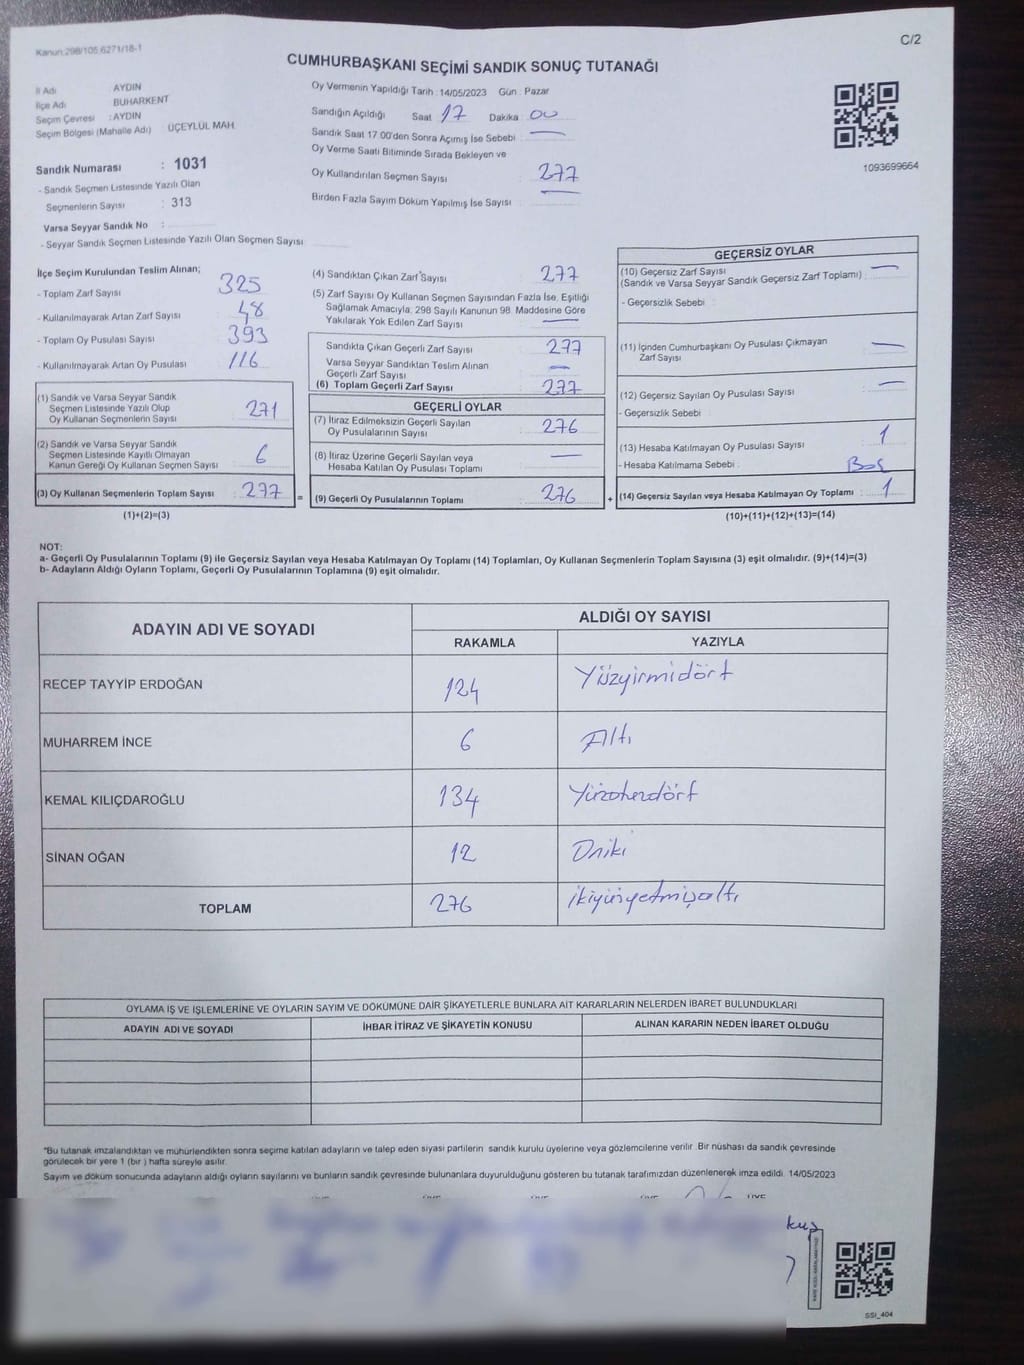 Kanun:298/105,6271/18-1
C/2
CUMHURBAŞKANI SEÇİMİ SANDIK SONUÇ TUTANAĞI
İl Adı AYDIN
İlçe Adı BUHARKENT
Seçim Çevresi : AYDIN
Seçim Bölgesi (Mahalle Adı) ÜÇEYLÜL MAH.
Sandık Numarası : 1031
- Sandık Seçmen Listesinde Yazılı Olan
Seçmenlerin Sayısı : 313
Varsa Seyyar Sandık No :
- Seyyar Sandık Seçmen Listesinde Yazılı Olan Seçmen Sayısı
Oy Vermenin Yapıldığı Tarih : 14/05/2023 Gün : Pazar
Sandığın Açıldığı Saat 17 Dakika : 00
Sandık Saat 17:00'den Sonra Açımış İse Sebebi : —
Oy Verme Saati Bitiminde Sırada Bekleyen ve
Oy Kullandırılan Seçmen Sayısı : 277
Birden Fazla Sayım Döküm Yapılmış İse Sayısı : —
1093699664
İlçe Seçim Kurulundan Teslim Alınan;
- Toplam Zarf Sayısı : 325
- Kullanılmayarak Artan Zarf Sayısı : 48
- Toplam Oy Pusulası Sayısı : 393
- Kullanılmayarak Artan Oy Pusulası : 116
(1) Sandık ve Varsa Seyyar Sandık
Seçmen Listesinde Yazılı Olup
Oy Kullanan Seçmenlerin Sayısı : 271
(2) Sandık ve Varsa Seyyar Sandık
Seçmen Listesinde Kayıtlı Olmayan
Kanun Gereği Oy Kullanan Seçmen Sayısı : 6
(3) Oy Kullanan Seçmenlerin Toplam Sayısı : 277 =
(1)+(2)=(3)
(4) Sandıktan Çıkan Zarf Sayısı : 277
(5) Zarf Sayısı Oy Kullanan Seçmen Sayısından Fazla İse, Eşitliği
Sağlamak Amacıyla, 298 Sayılı Kanunun 98. Maddesine Göre
Yakılarak Yok Edilen Zarf Sayısı : —
Sandıkta Çıkan Geçerli Zarf Sayısı : 277
Varsa Seyyar Sandıktan Teslim Alınan
Geçerli Zarf Sayısı : —
(6) Toplam Geçerli Zarf Sayısı : 277
GEÇERLİ OYLAR
(7) İtiraz Edilmeksizin Geçerli Sayılan
Oy Pusulalarının Sayısı : 276
(8) İtiraz Üzerine Geçerli Sayılan veya
Hesaba Katılan Oy Pusulası Toplamı : —
(9) Geçerli Oy Pusulalarının Toplamı : 276 +
GEÇERSİZ OYLAR
(10) Geçersiz Zarf Sayısı
(Sandık ve Varsa Seyyar Sandık Geçersiz Zarf Toplamı) : —
- Geçersizlik Sebebi :
(11) İçinden Cumhurbaşkanı Oy Pusulası Çıkmayan
Zarf Sayısı : —
(12) Geçersiz Sayılan Oy Pusulası Sayısı : —
- Geçersizlik Sebebi :
(13) Hesaba Katılmayan Oy Pusulası Sayısı : 1
- Hesaba Katılmama Sebebi : Boş
(14) Geçersiz Sayılan veya Hesaba Katılmayan Oy Toplamı : 1
(10)+(11)+(12)+(13)=(14)
NOT:
a- Geçerli Oy Pusulalarının Toplamı (9) ile Geçersiz Sayılan veya Hesaba Katılmayan Oy Toplamı (14) Toplamları, Oy Kullanan Seçmenlerin Toplam Sayısına (3) eşit olmalıdır. (9)+(14)=(3)
b- Adayların Aldığı Oyların Toplamı, Geçerli Oy Pusulalarının Toplamına (9) eşit olmalıdır.
ADAYIN ADI VE SOYADI
ALDIĞI OY SAYISI
RAKAMLA YAZIYLA
RECEP TAYYİP ERDOĞAN 124 Yüzyirmidört
MUHARREM İNCE 6 Altı
KEMAL KILIÇDAROĞLU 134 Yüzotuzdört
SİNAN OĞAN 12 Oniki
TOPLAM 276 ikiyüzyetmişaltı
OYLAMA İŞ VE İŞLEMLERİNE VE OYLARIN SAYIM VE DÖKÜMÜNE DAİR ŞİKAYETLERLE BUNLARA AİT KARARLARIN NELERDEN İBARET BULUNDUKLARI
ADAYIN ADI VE SOYADI İHBAR İTİRAZ VE ŞİKAYETİN KONUSU ALINAN KARARIN NEDEN İBARET OLDUĞU
*Bu tutanak imzalandıktan ve mühürlendikten sonra seçime katılan adayların ve talep eden siyasi partilerin sandık kurulu üyelerine veya gözlemcilerine verilir. Bir nüshası da sandık çevresinde
görülecek bir yere 1 (bir ) hafta süreyle asılır.
Sayım ve döküm sonucunda adayların aldığı oyların sayılarını ve bunların sandık çevresinde bulunanlara duyurulduğunu gösteren bu tutanak tarafımızdan düzenlenerek imza edildi. 14/05/2023
kuş
SSİ_404